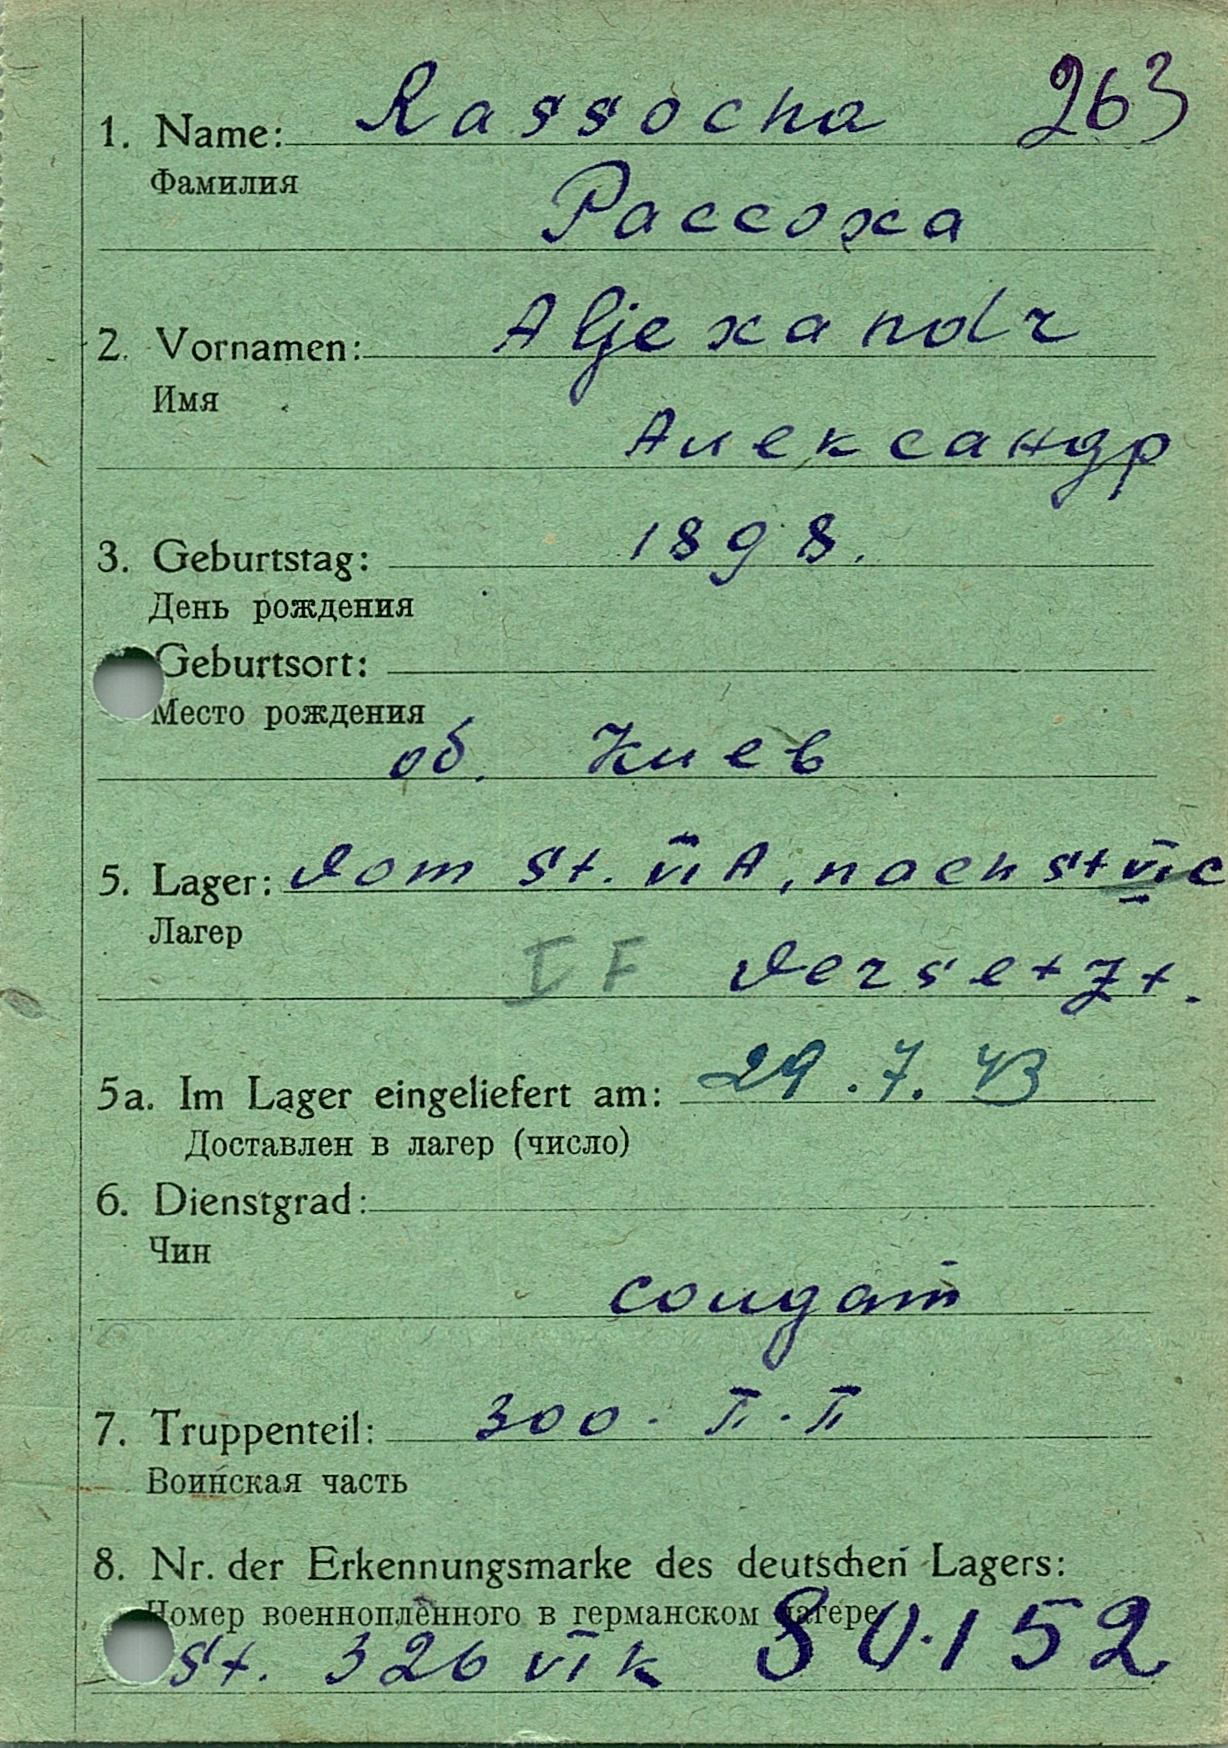 1. Name: Rassocha 263
Фамилия
Рассоха
2. Vornamen: Aljexandr
Имя
Александр
3. Geburtstag: 1898.
День рождения
Geburtsort:
Место рождения
об. Киев
5. Lager: Vom St. VI A, nach St VI C
Лагер
I F versetzt.
5a. Im Lager eingeliefert am: 29.7.43
Доставлен в лагер (число)
6. Dienstgrad:
Чин
солдат
7. Truppenteil: 300. П.П
Воинская часть
8. Nr. der Erkennungsmarke des deutschen Lagers:
Номер военнопленного в германском лагере
St. 326 VI K 80152